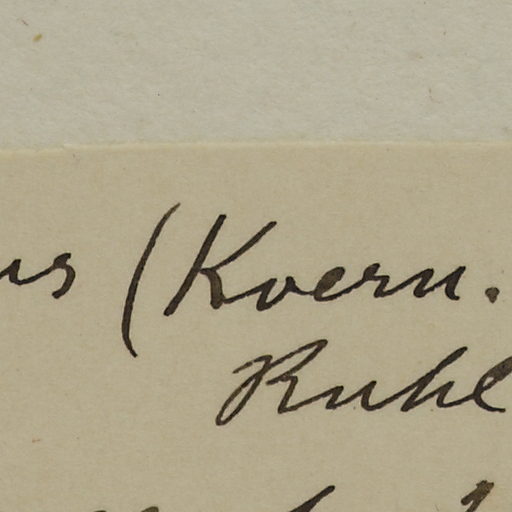 us (Koern.
Ruhl